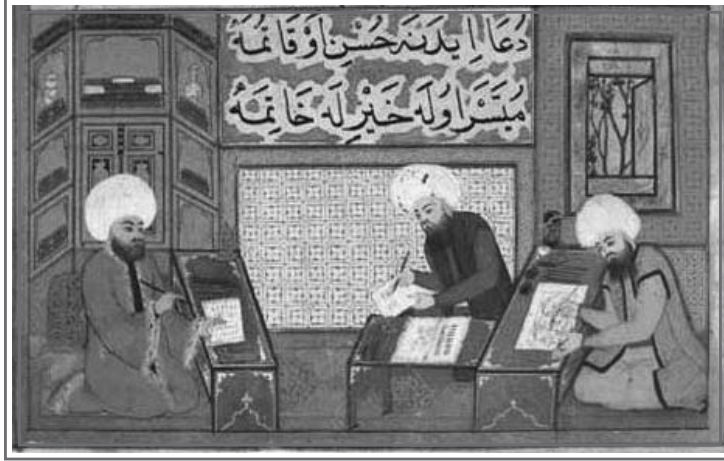 دُعَا اِيدَنَه حُسْنِ اَوْقَاتمَهُ
مُيَسَّرْ اوُلَه خَيْرِ لَه خَاتِمَهُ